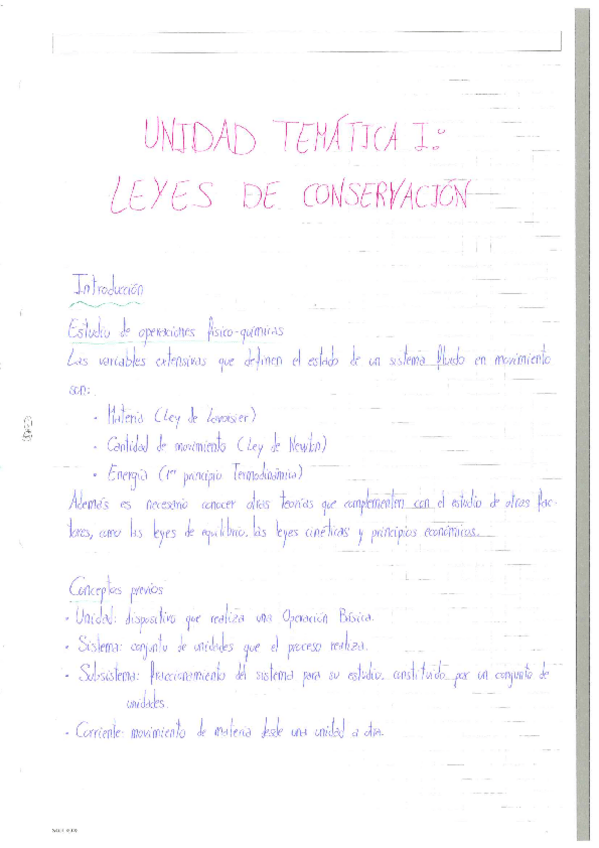 UNIDAD TEMÁTICA I:
LEYES DE CONSERVACIÓN
Introducción
Estudio de operaciones físico-químicas
Las variables extensivas que definen el estado de un sistema fluido en movimiento
son:
· Materia (Ley de Lavoisier)
· Cantidad de movimiento (Ley de Newton)
· Energía (1er principio Termodinámica)
Además es necesario conocer otras teorías que complementen con el estudio de otros fac-
tores, como las leyes de equilibrio, las leyes cinéticas y principios económicos.
Conceptos previos
· Unidad: dispositivo que realiza una Operación Básica.
· Sistema: conjunto de unidades que el proceso realiza.
· Subsistema: fraccionamiento del sistema para su estudio, constituido por un conjunto de
unidades.
· Corriente: movimiento de materia desde una unidad a otra.